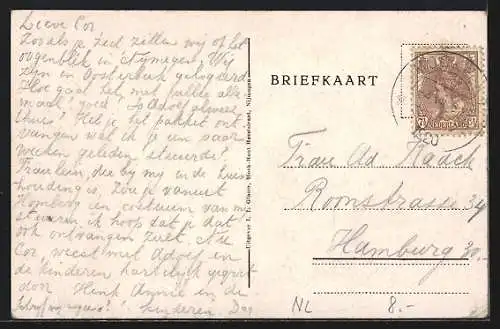 Lieve Cor
Zooals je ziet zitten wij op het
oogenblik in Nijmegen. Wij
zijn in Oosterbeek gelogeerd
Hoe gaat het met jullie alle
maal? goed? Is Adolf alweer
thuis? Heb je het pakket ont
vangen wat ik je een paar
weken geleden stuurde?
Fraulein, die bij mij in de huis
houding is, zou je vanuit
Homberg een costuum van mij
sturen ik hoop dat je dat
ook ontvangen zult. Nu
Cor, weest met Adolf en
de kinderen hartelijk gegroet
door Henk Annie en de
Schrijf mij eens! kinderen Dag
Uitgever L. T.
Nijmegen
BRIEFKAART
NEDERLAND
7½
Frau Ad Haack
Roonstrasse 34
Hamburg 30.
NL 8.-